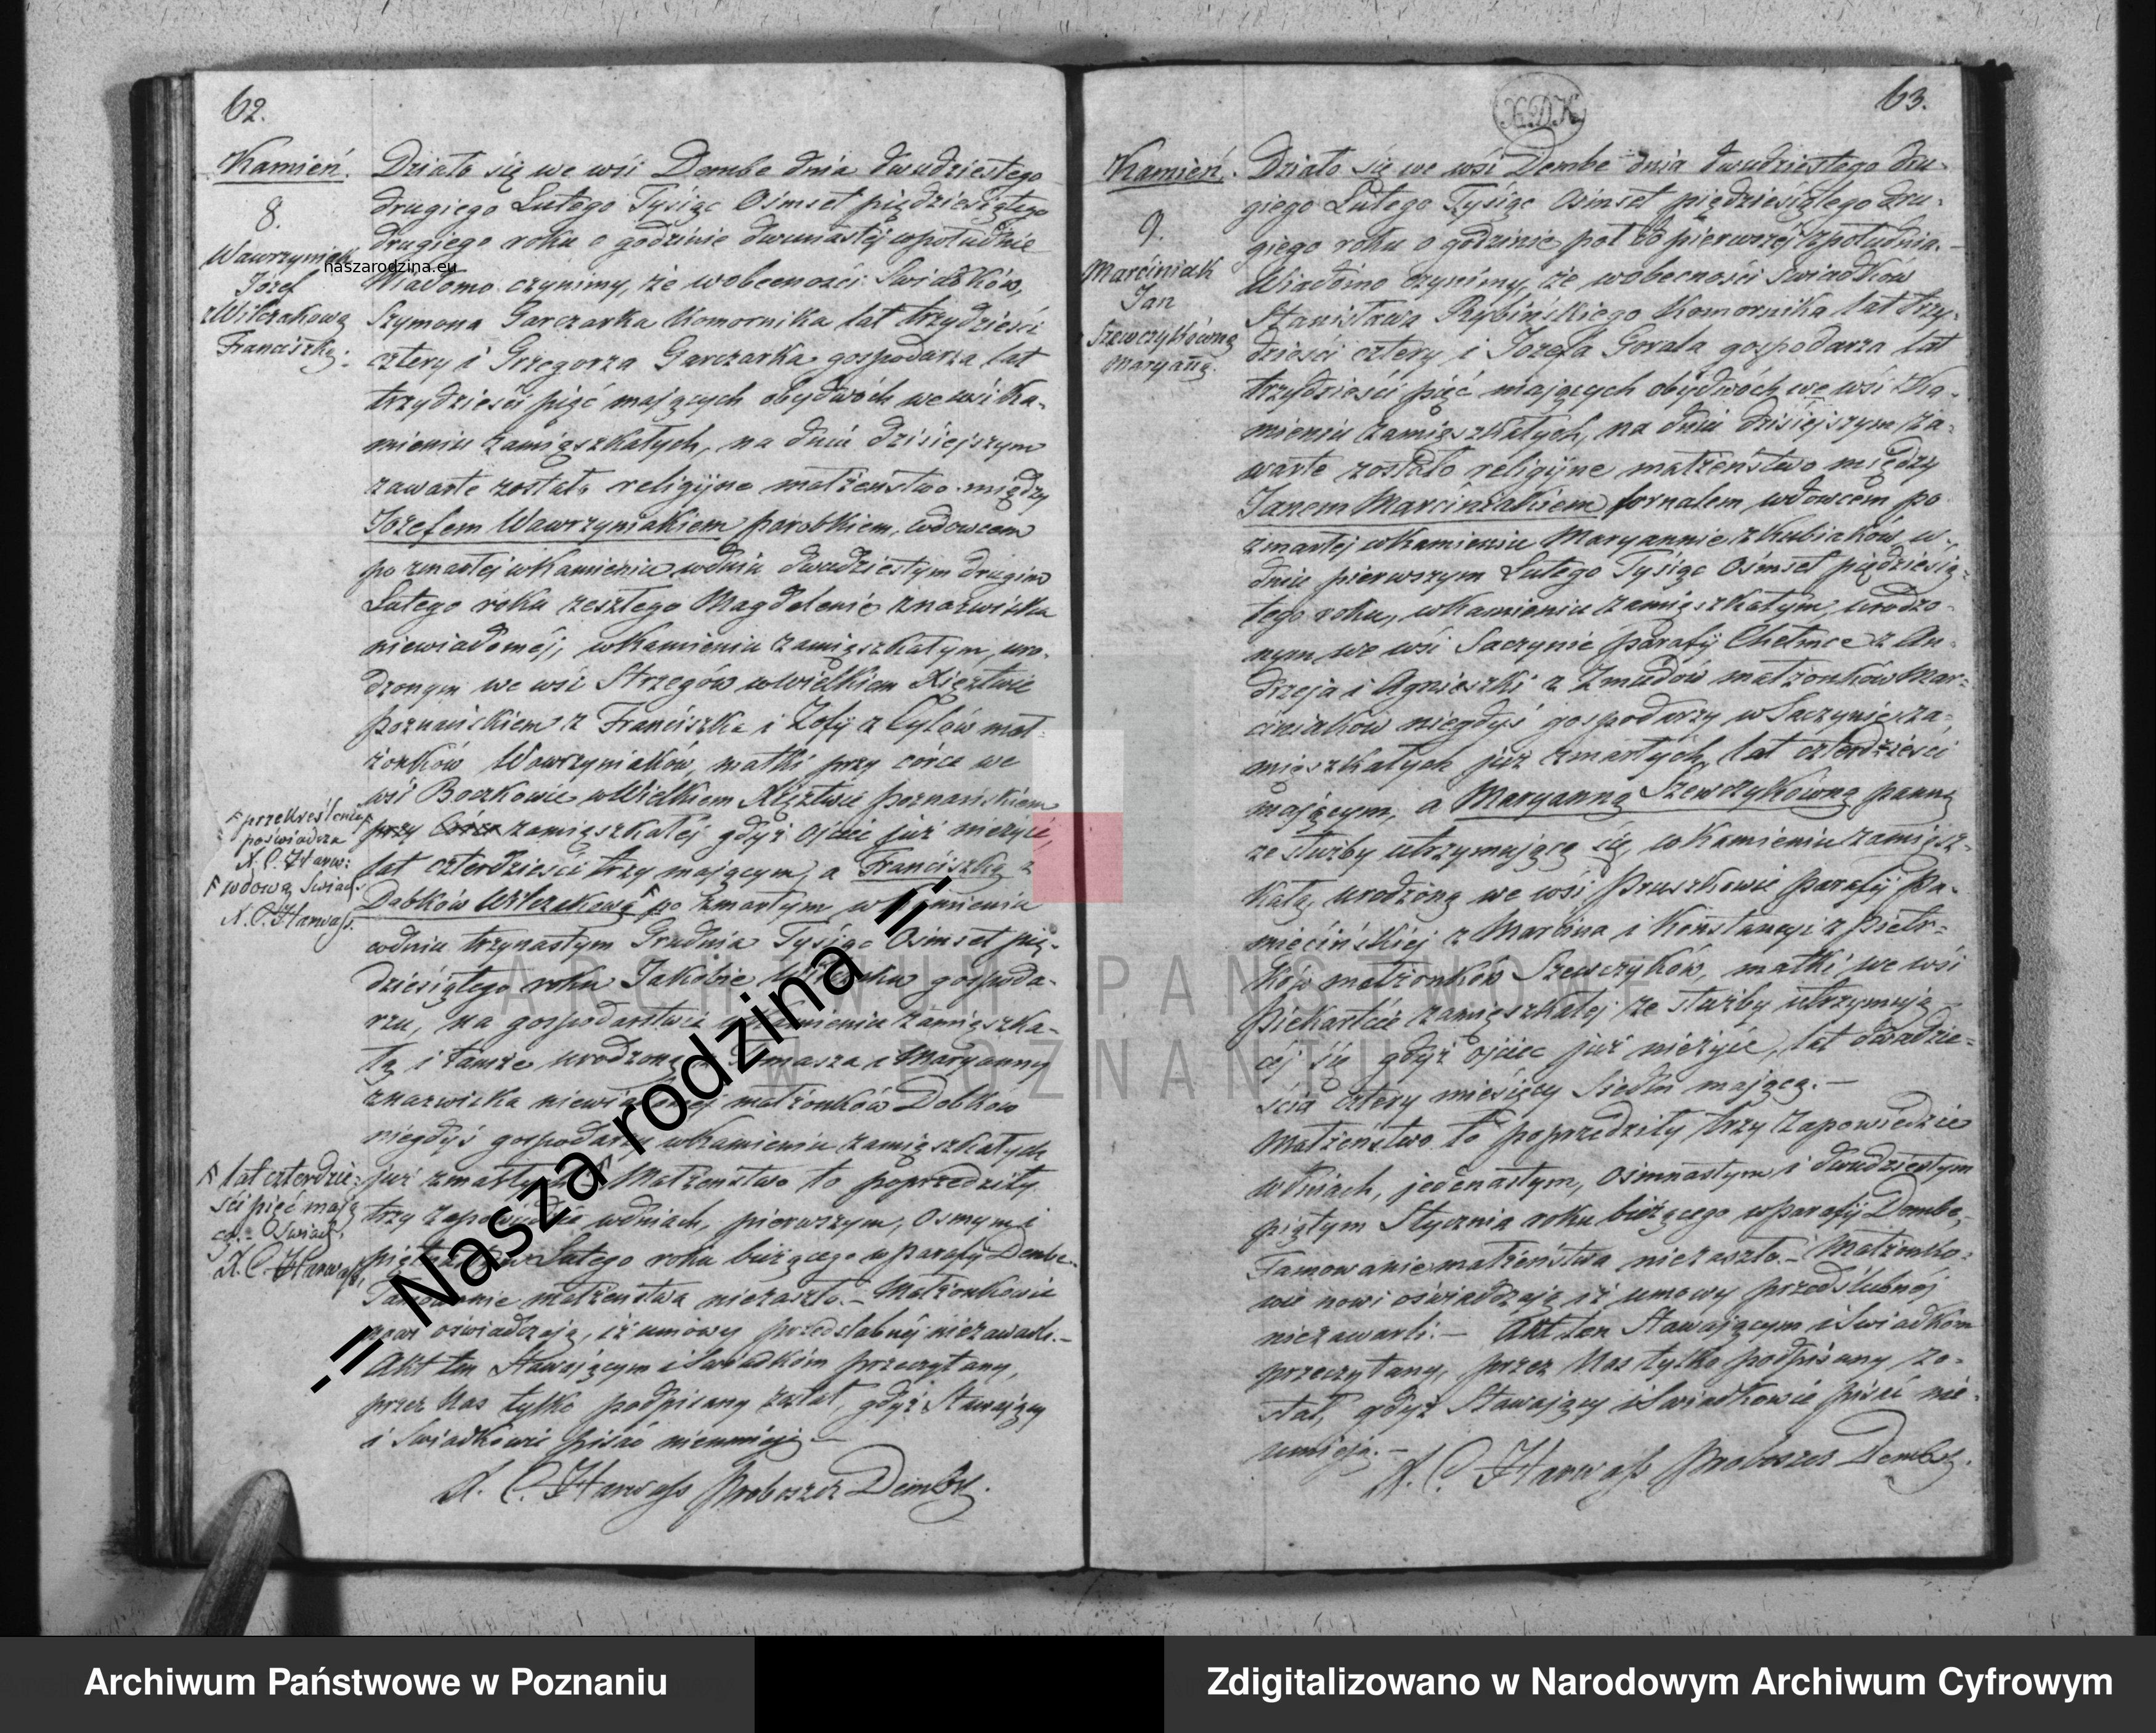 62.
Kamień.
8.
Wawrzyniak
Józef
z Wilczakową
Franciszką.
naszarodzina.eu
Działo się we wsi Dembe dnia dwudziestego
drugiego Lutego Tysiąc Ośmset pięćdziesiątego
drugiego roku o godzinie dwunastéj w południe
Wiadomo czynimy, że w obecności Świadków,
Szymona Garczarka Komornika lat trzydzieści
cztery i Grzegorza Garczarka gospodarza lat
trzydzieści pięć mających obydwóch we wsi Ka-
mieniu zamięszkałych, na dniu dzisiejszym
zawarte zostało religijne małżeństwo między
Józefem Wawrzyniakiem parobkiem, wdowcem
po zmarłej w Kamieniu w dniu dwudziestym drugim
Lutego roku zeszłego Magdalenie z nazwiska
niewiadoméj, w Kamieniu zamięszkałym, uro-
dzonym we wsi Strzegów w Wielkiem Xięztwie
poznańskiem z Franciszka i Zofij z Cylów mał-
żonków Wawrzyniaków, matki przy córce we
wsi Boczkowie w Wielkiem Xięztwie poznańskiem
przy córce zamięszkałéj gdyż ojciec już nieżyie,
lat czterdzieści trzy mającym, a Franciszką z
Dabków Wilczakową po zmarłym w Kamieniu
w dniu trzynastym Grudnia Tysiąc Ośmset pięć-
dziesiątego roku Jakóbie Wilczaku gospoda-
rzu, na gospodarstwie w Kamieniu zamięszka-
łą i tamże urodzoną z Tomasza i Maryanny
z nazwiska niewiadoméj małżonków Dabków
niegdyś gospodarzy w Kamieniu zamięszkałych
już zmarłych Małżeństwo to poprzedziły
trzy zapowiedzie w dniach, pierwszym, ósmym i
piętnastym Lutego roku bieżącego w parafij Dembe.
Tamowanie małżeństwa niezaszło. – Małżonkowie
nowi oświadczają, iż umowy przedślubnéj niezawarli. –
Akt ten Stawającym i Świadkóm przeczytany,
przez Nas tylko podpisany został, gdyż Stawający
i Świadkowie pisać nieumieją. –
X. C. Harwass Proboszcz Dembsk.
przekreślenie
poświadcza
X. C. Harw:
wdową Świad.
X. C. Harwass.
lat czterdzie-
ści pięć mają
cą. – Świad.
X. C. Harwass.
63.
Kamień.
9.
Marciniak
Jan
Szewczykówną
Maryanną.
Działo się we wsi Dembe dnia dwudziestego dru-
giego Lutego Tysiąc Ośmset pięćdziesiątego dru-
giego roku o godzinie pół do pierwszéj z południa. –
Wiadomo czynimy, że w obecności Świadków
Stanisława Rybińskiego Komornika lat trzy-
dzieści cztery i Józefa Gorala gospodarza lat
trzydzieści pięć mających obydwóch we wsi Ka-
mieniu zamięszkałych, na dniu dzisiejszym za-
warte zostało religijne małżeństwo między
Janem Marciniakiem fornalem, wdowcem po
zmarłej w Kamieniu Maryannie z Kubiaków w
dniu pierwszym Lutego Tysiąc Ośmset pięćdziesią-
tego roku, w Kamieniu zamięszkałym, urodzo-
nym we wsi Saczynie parafij Chełmce z An-
drzeja i Agnieszki z Żmudów małżonków Mar-
ciniaków niegdyś gospodarzy w Saczynie za-
mięszkałych już zmarłych, lat czterdzieści
mającym, a Maryanną Szewczykówną panną
ze służby utrzymującą się, w Kamieniu zamięsz-
kałą, urodzoną we wsi Pruszkowie parafij Ka-
mięcińskiéj z Marcina i Konstancyi z Pietr-
ków małżonków Szewczyków, matki we wsi
Piekarcie zamięszkałéj ze służby utrzymują-
céj się gdyż ojciec już nieżyie, lat dwadzie-
ścia cztery miesięcy siedm mającą. –
Małżeństwo to poprzedziły trzy zapowiedzie
w dniach, jedenastym, ośmnastym i dwudziestym
piątym Stycznia roku bieżącego w parafij Dembe,
Tamowanie małżeństwa niezaszło. – Małżonko-
wie nowi oświadczają iż umowy przedślubnéj
niezawarli. – Akt ten Stawającym i Świadkóm
przeczytany, przez Nas tylko podpisany zo-
stał, gdyż Stawający i Świadkowie pisać nie-
umieją. –
X. C. Harwass Proboszcz Dembsk.
ARCHIWUM PAŃSTWOWE
W POZNANIU
-= Nasza rodzina =-
Archiwum Państwowe w Poznaniu
Zdigitalizowano w Narodowym Archiwum Cyfrowym